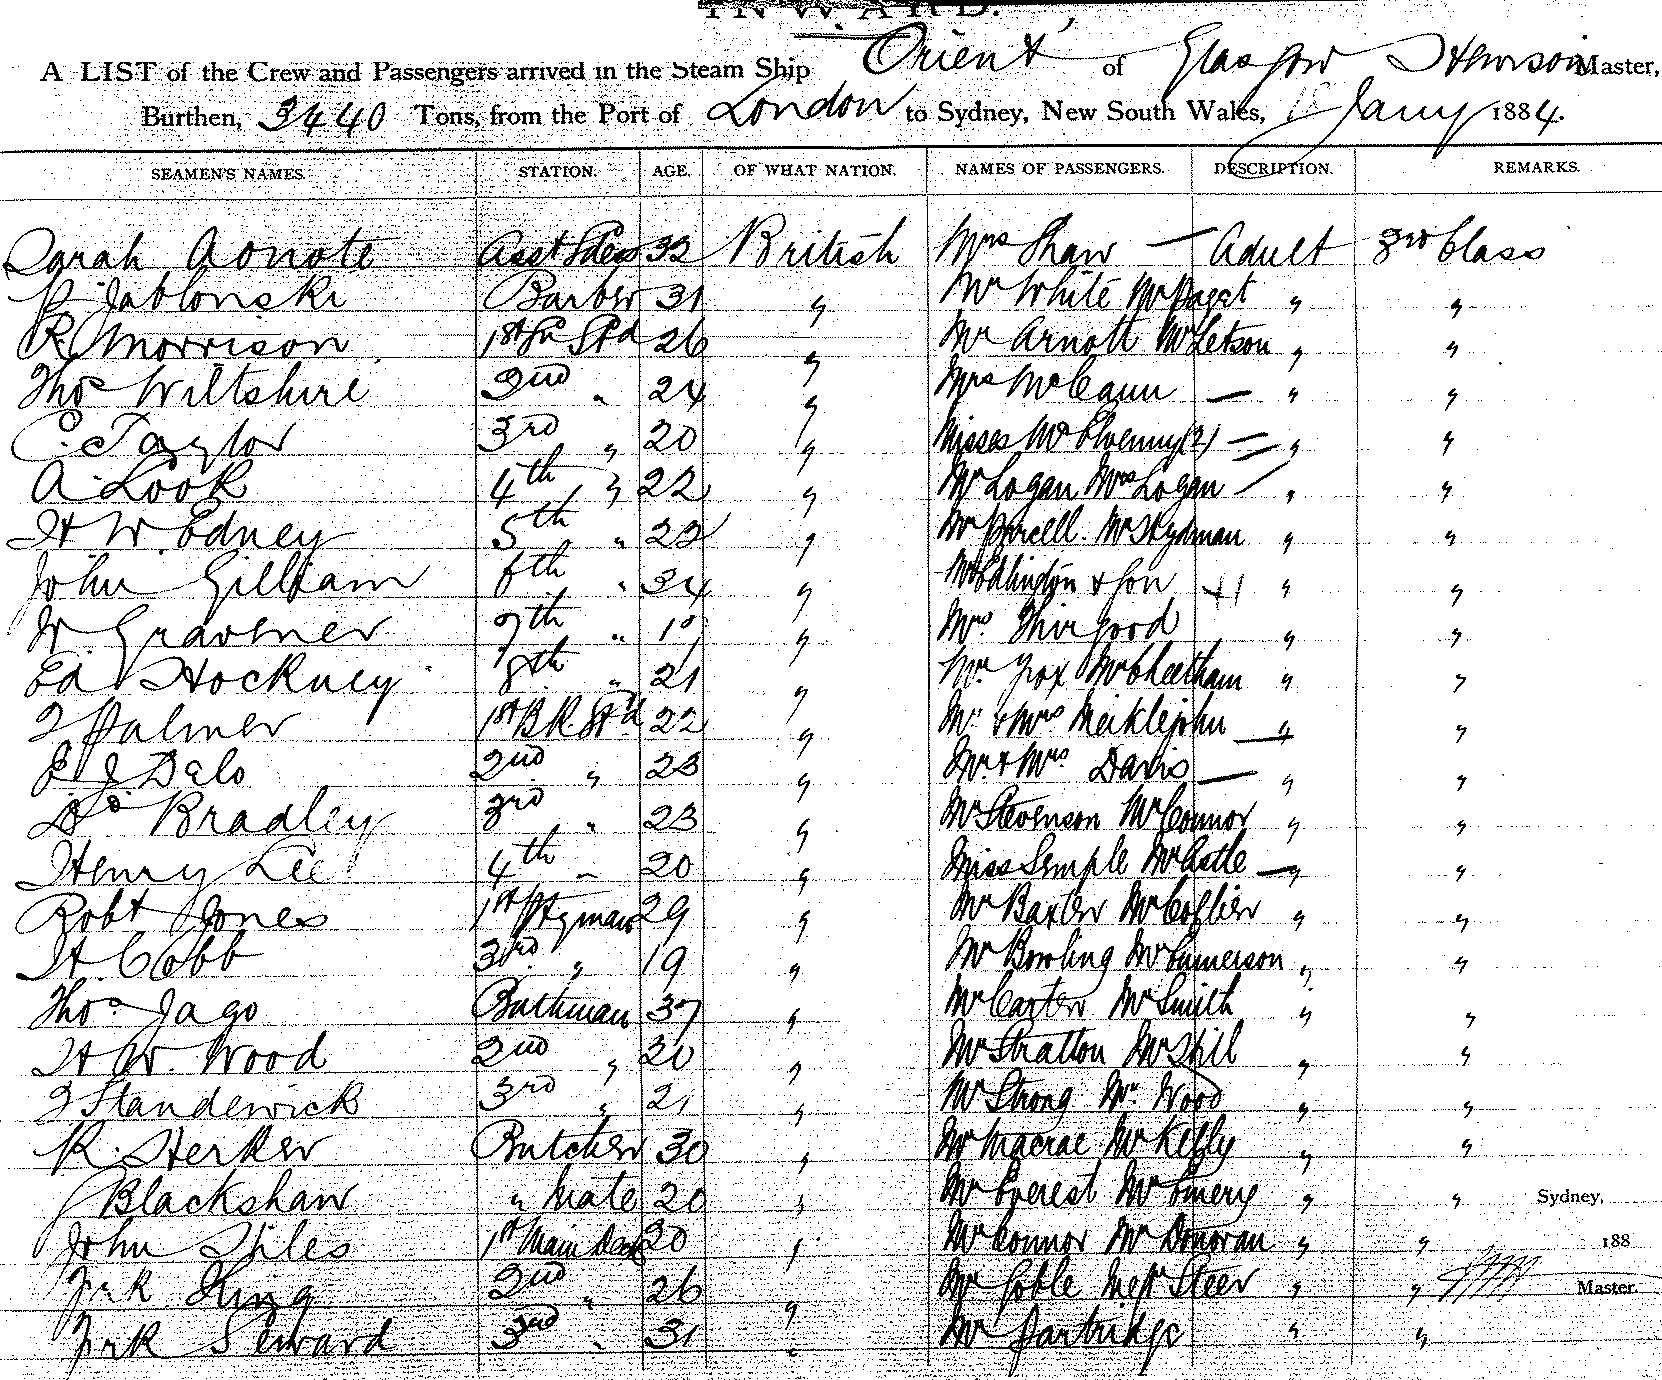 INWARD.
A LIST of the Crew and Passengers arrived in the Steam Ship Orient of Glasgow Master,
Burthen, 3440 Tons, from the Port of London to Sydney, New South Wales, Jany 1884.
SEAMEN'S NAMES. STATION. AGE. OF WHAT NATION. NAMES OF PASSENGERS. DESCRIPTION. REMARKS.
Sarah 32 British Mrs Shaw — Adult 3rd Class
Jablonski Barber 31 " Mr White Mr Paget " "
R. Morrison 1st Std 26 " Mr Arnott Mr Letson " "
Thos Wiltshire 2nd " 24 " Mrs McCann — " "
C. Taylor 3rd " 20 " Misses McElvenny (2) = " "
A. Look 4th " 22 " Mr Logan Mrs Logan — " "
H W. Edney 5th " 22 " Mr Purcell. Mr " "
John Gilliam 6th " 34 " & Son +1 " "
W. 7th " 19 " Mrs. Thirgood " "
Ed Hockney 8th " 21 " Mr. Fox Mr Cheetham " "
Palmer 1st B.R. Std 22 " Mr. & Mrs Meiklejohn — " "
E. J Dalo 2nd " 23 " Mr. & Mrs Davis — " "
Bradley 3rd " 23 " Mr Stevenson Mr Connor " "
Henry Lee 4th " 20 " Miss Semple Mr Astle — " "
Robt Jones 1st 29 " Mr Baxter Mr Collier " "
H. Cobb 3rd " 19 " Mr Bowling Mr " "
Thos. Jago Bathman 37 " Mr Carter Mr Smith " "
H W. Wood 2nd " 20 " Mr Stratton Mr Hill " "
Standerwick 3rd " 21 " Mr Strong Mr. Wood " "
R. Herker Butcher 30 " Mr Macrae Mr Kelly " "
J Blackshaw " Mate 20 " Mr Everest Mr Emery " " Sydney,
John Stiles 1st Main Deck 20 " Mr Connor Mr Donovan " " 188
Frk King 2nd " 26 " Mr Goble Steer " " Master.
Frk Seward 3rd " 31 " Mr Partridge " "